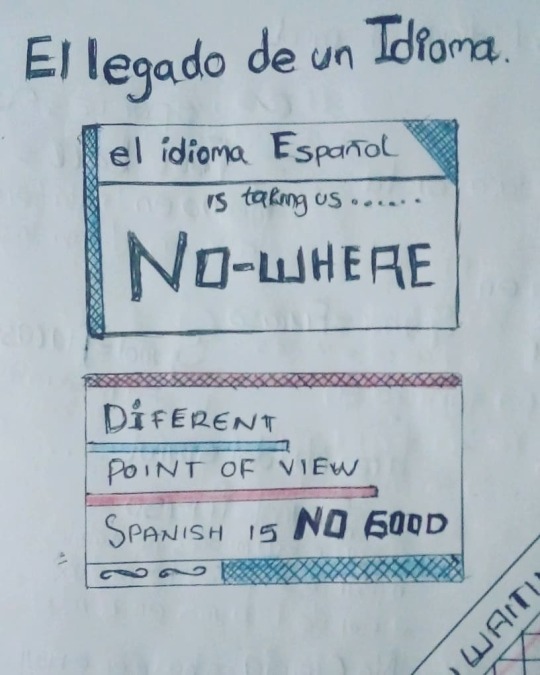 El legado de un Idioma.
el idioma Español
is taking us.......
NO-WHERE
DiFERENT
POINT OF VIEW
SPANISH IS NO GOOD
WAITI